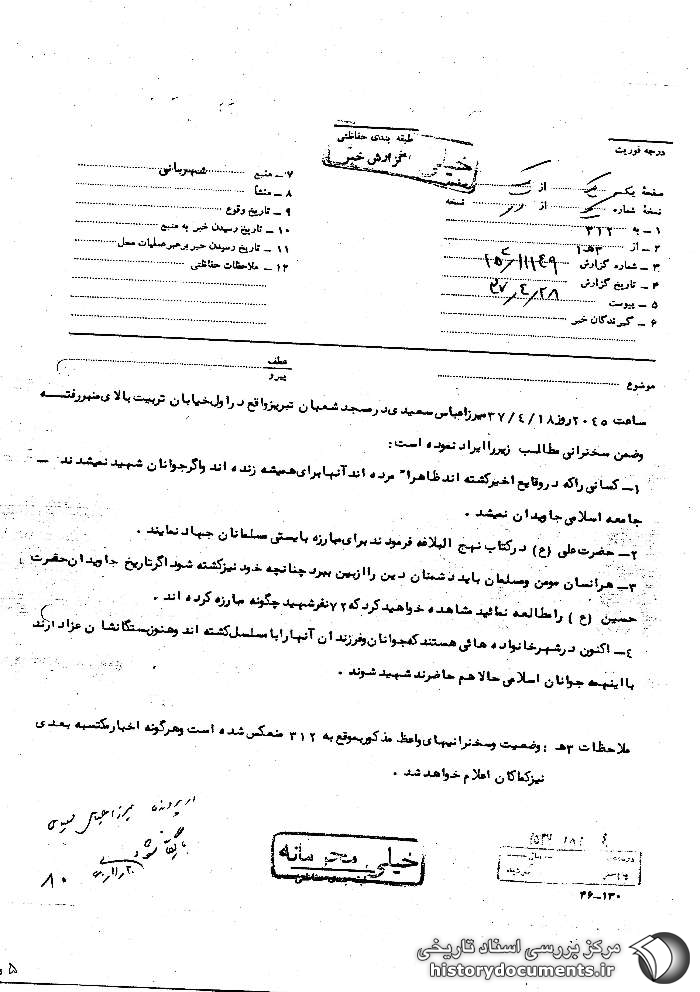 درجه فوریت
طبقه بندی حفاظتی
خیلی
گزارش خبر
صفحه یک از
نسخه شماره از نسخه
۱ـ به ۳۱۲
۲ـ از ۳هـ۱
۳ـ شماره گزارش
۴ـ تاریخ گزارش ۳۷,۴,۲۸
۵ـ پیوست
۶ـ گیرندگان خبر
۷ـ منبع شهربانی
۸ـ منشأ
۹ـ تاریخ وقوع
۱۰ـ تاریخ رسیدن خبر به منبع
۱۱ـ تاریخ رسیدن خبر برهبر عملیات محل
۱۲ـ ملاحظات حفاظتی
موضوع
عطف
پیرو
ساعت ۲۰۴۵ روز ۳۷/۴/۱۸ میرزا عباس سعیدی در مسجد شعبان تبریز واقع در اول خیابان تربیت بالای منبر رفته
وضمن سخنرانی مطالب زیر را ایراد نموده است:
۱ـ کسانی را که در وقایع اخیر کشته اند ظاهراً مرده اند آنها برای همیشه زنده اند واگر جوانان شهید نمیشدند ـ
جامعه اسلامی جاویدان نمیشد .
۲ـ حضرت علی (ع) در کتاب نهج البلاغه فرمودند برای مبارزه بایستی مسلمانان جهاد نمایند .
۳ـ هر انسان مومن ومسلمان باید دشمنان دین را از بین ببرد چنانچه خود نیز کشته شود اگر تاریخ جاویدان حضرت
حسین (ع) را مطالعه نمائید مشاهده خواهید کرد که ۷۲ نفر شهید چگونه مبارزه کرده اند .
۴ـ اکنون در شهر خانواده هائی هستند که جوانان وفرزندان آنها را با مسلسل کشته اند وهنوز بستگانشان عزادارند
با اینهمه جوانان اسلامی حالا هم حاضرند شهید شوند .
ملاحظات ۳هـ : وضعیت وسخنرانیهای واعظ مذکور بموقع به ۳۱۲ منعکس شده است وهرگونه اخبار مکتسبه بعدی
نیز کماکان اعلام خواهد شد .
میرزا عباس
۸۰
خیلی محرمانه
طبقه بندی حفاظتی
۴۶ـ۱۳۰
۵
مرکز بررسی اسناد تاریخی
historydocuments.ir